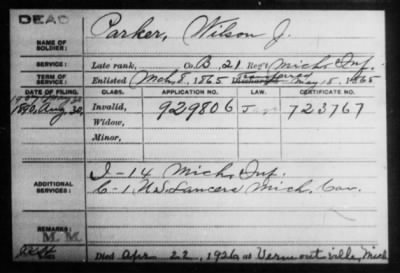 DEAD
NAME OF SOLDIER: Parker, Wilson J.
SERVICE: Late rank, Co. B, 21 Reg't Mich. Inf.
TERM OF SERVICE: Enlisted Mch. 8, 1865 Discharged May 18, 1865
DATE OF FILING. CLASS. APPLICATION NO. LAW. CERTIFICATE NO.
1890, Aug. 30, Invalid, 929806 723767
Widow,
Minor,
ADDITIONAL SERVICES: I-14 Mich. Inf.
C-1, U.S. Lancers Mich. Cav.
REMARKS: M. M.
Died Apr 22, 1926 at Vermontville, Mich